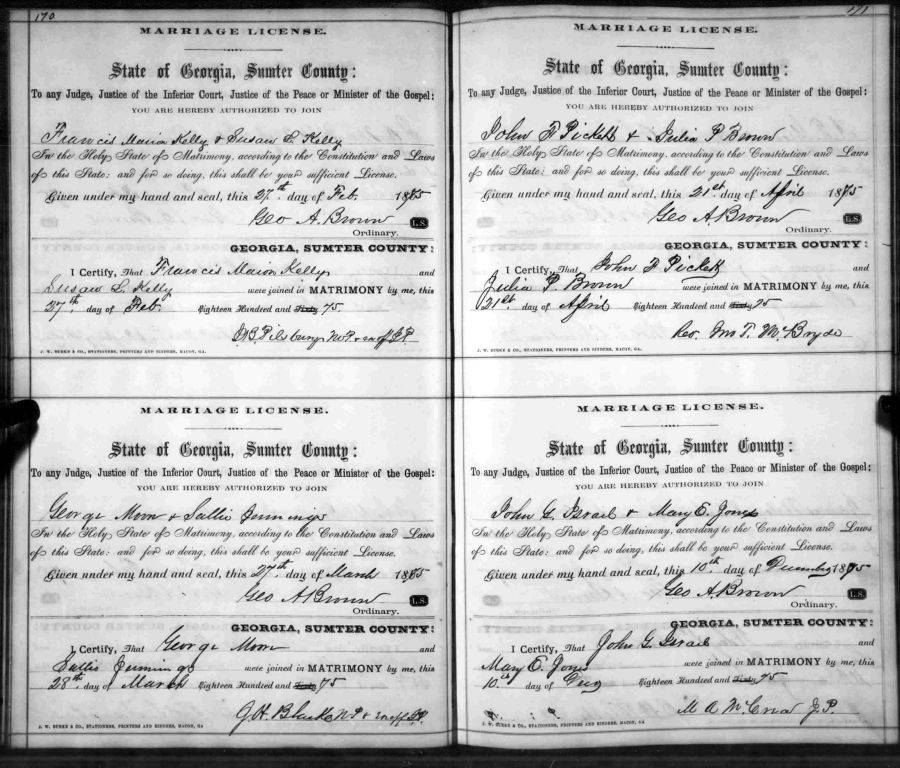 170
MARRIAGE LICENSE.
State of Georgia, Sumter County:
To any Judge, Justice of the Inferior Court, Justice of the Peace or Minister of the Gospel:
YOU ARE HEREBY AUTHORIZED TO JOIN
Francis Maion Kelly & Susan L. Kelly
In the Holy State of Matrimony, according to the Constitution and Laws
of this State: and for so doing, this shall be your sufficient License.
Given under my hand and seal, this 27th day of Feb. 1875
Geo A. Brown L.S.
Ordinary.
GEORGIA, SUMTER COUNTY:
I Certify, That Francis Maion Kelly and
Susan L. Kelly were joined in MATRIMONY by me, this
27th day of Feb. Eighteen Hundred and Sixty 75
Pilsbury
J. W. BURKE & CO., STATIONERS, PRINTERS AND BINDERS, MACON, GA.
MARRIAGE LICENSE.
State of Georgia, Sumter County:
To any Judge, Justice of the Inferior Court, Justice of the Peace or Minister of the Gospel:
YOU ARE HEREBY AUTHORIZED TO JOIN
George Moon & Sallie Jennings
In the Holy State of Matrimony, according to the Constitution and Laws
of this State: and for so doing, this shall be your sufficient License.
Given under my hand and seal, this 27th day of March 1875
Geo A. Brown L.S.
Ordinary.
GEORGIA, SUMTER COUNTY:
I Certify, That George Moon and
Sallie Jennings were joined in MATRIMONY by me, this
28th day of March Eighteen Hundred and Sixty 75
J. W. BURKE & CO., STATIONERS, PRINTERS AND BINDERS, MACON, GA.
171
MARRIAGE LICENSE.
State of Georgia, Sumter County:
To any Judge, Justice of the Inferior Court, Justice of the Peace or Minister of the Gospel:
YOU ARE HEREBY AUTHORIZED TO JOIN
John F Pickett & Julia P Brown
In the Holy State of Matrimony, according to the Constitution and Laws
of this State: and for so doing, this shall be your sufficient License.
Given under my hand and seal, this 21st day of April 1875
Geo A. Brown L.S.
Ordinary.
GEORGIA, SUMTER COUNTY:
I Certify, That John F Pickett and
Julia P Brown were joined in MATRIMONY by me, this
21st day of April Eighteen Hundred and Sixty 75
Rev. Wm T. McBryde
J. W. BURKE & CO., STATIONERS, PRINTERS AND BINDERS, MACON, GA.
MARRIAGE LICENSE.
State of Georgia, Sumter County:
To any Judge, Justice of the Inferior Court, Justice of the Peace or Minister of the Gospel:
YOU ARE HEREBY AUTHORIZED TO JOIN
John G. Israel & Mary E. Jones
In the Holy State of Matrimony, according to the Constitution and Laws
of this State: and for so doing, this shall be your sufficient License.
Given under my hand and seal, this 10th day of 1875
Geo A. Brown L.S.
Ordinary.
GEORGIA, SUMTER COUNTY:
I Certify, That John G. Israel and
Mary E. Jones were joined in MATRIMONY by me, this
10th day of Eighteen Hundred and Sixty 75
M A McCrea J.P.
J. W. BURKE & CO., STATIONERS, PRINTERS AND BINDERS, MACON, GA.